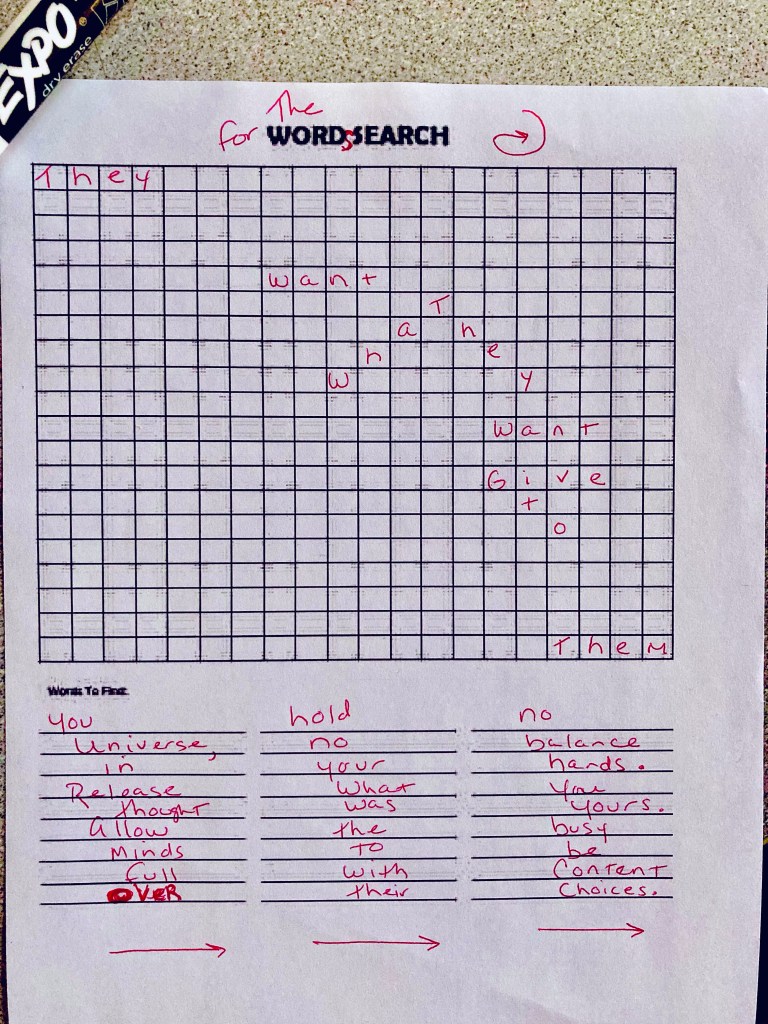 EXPO
dry erase
The
for WORDSSEARCH
They
want
T
a h
h e
W y
want
Give
t
o
Them
Words To Find:
you hold no
Universe, no balance
in your hands.
Release what you
thought was yours.
Allow the busy
Minds TO be
full with Content
OVER their Choices.